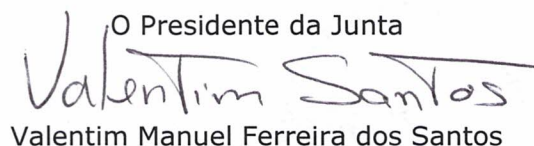 O Presidente da Junta
Valentim Santos
Valentim Manuel Ferreira dos Santos